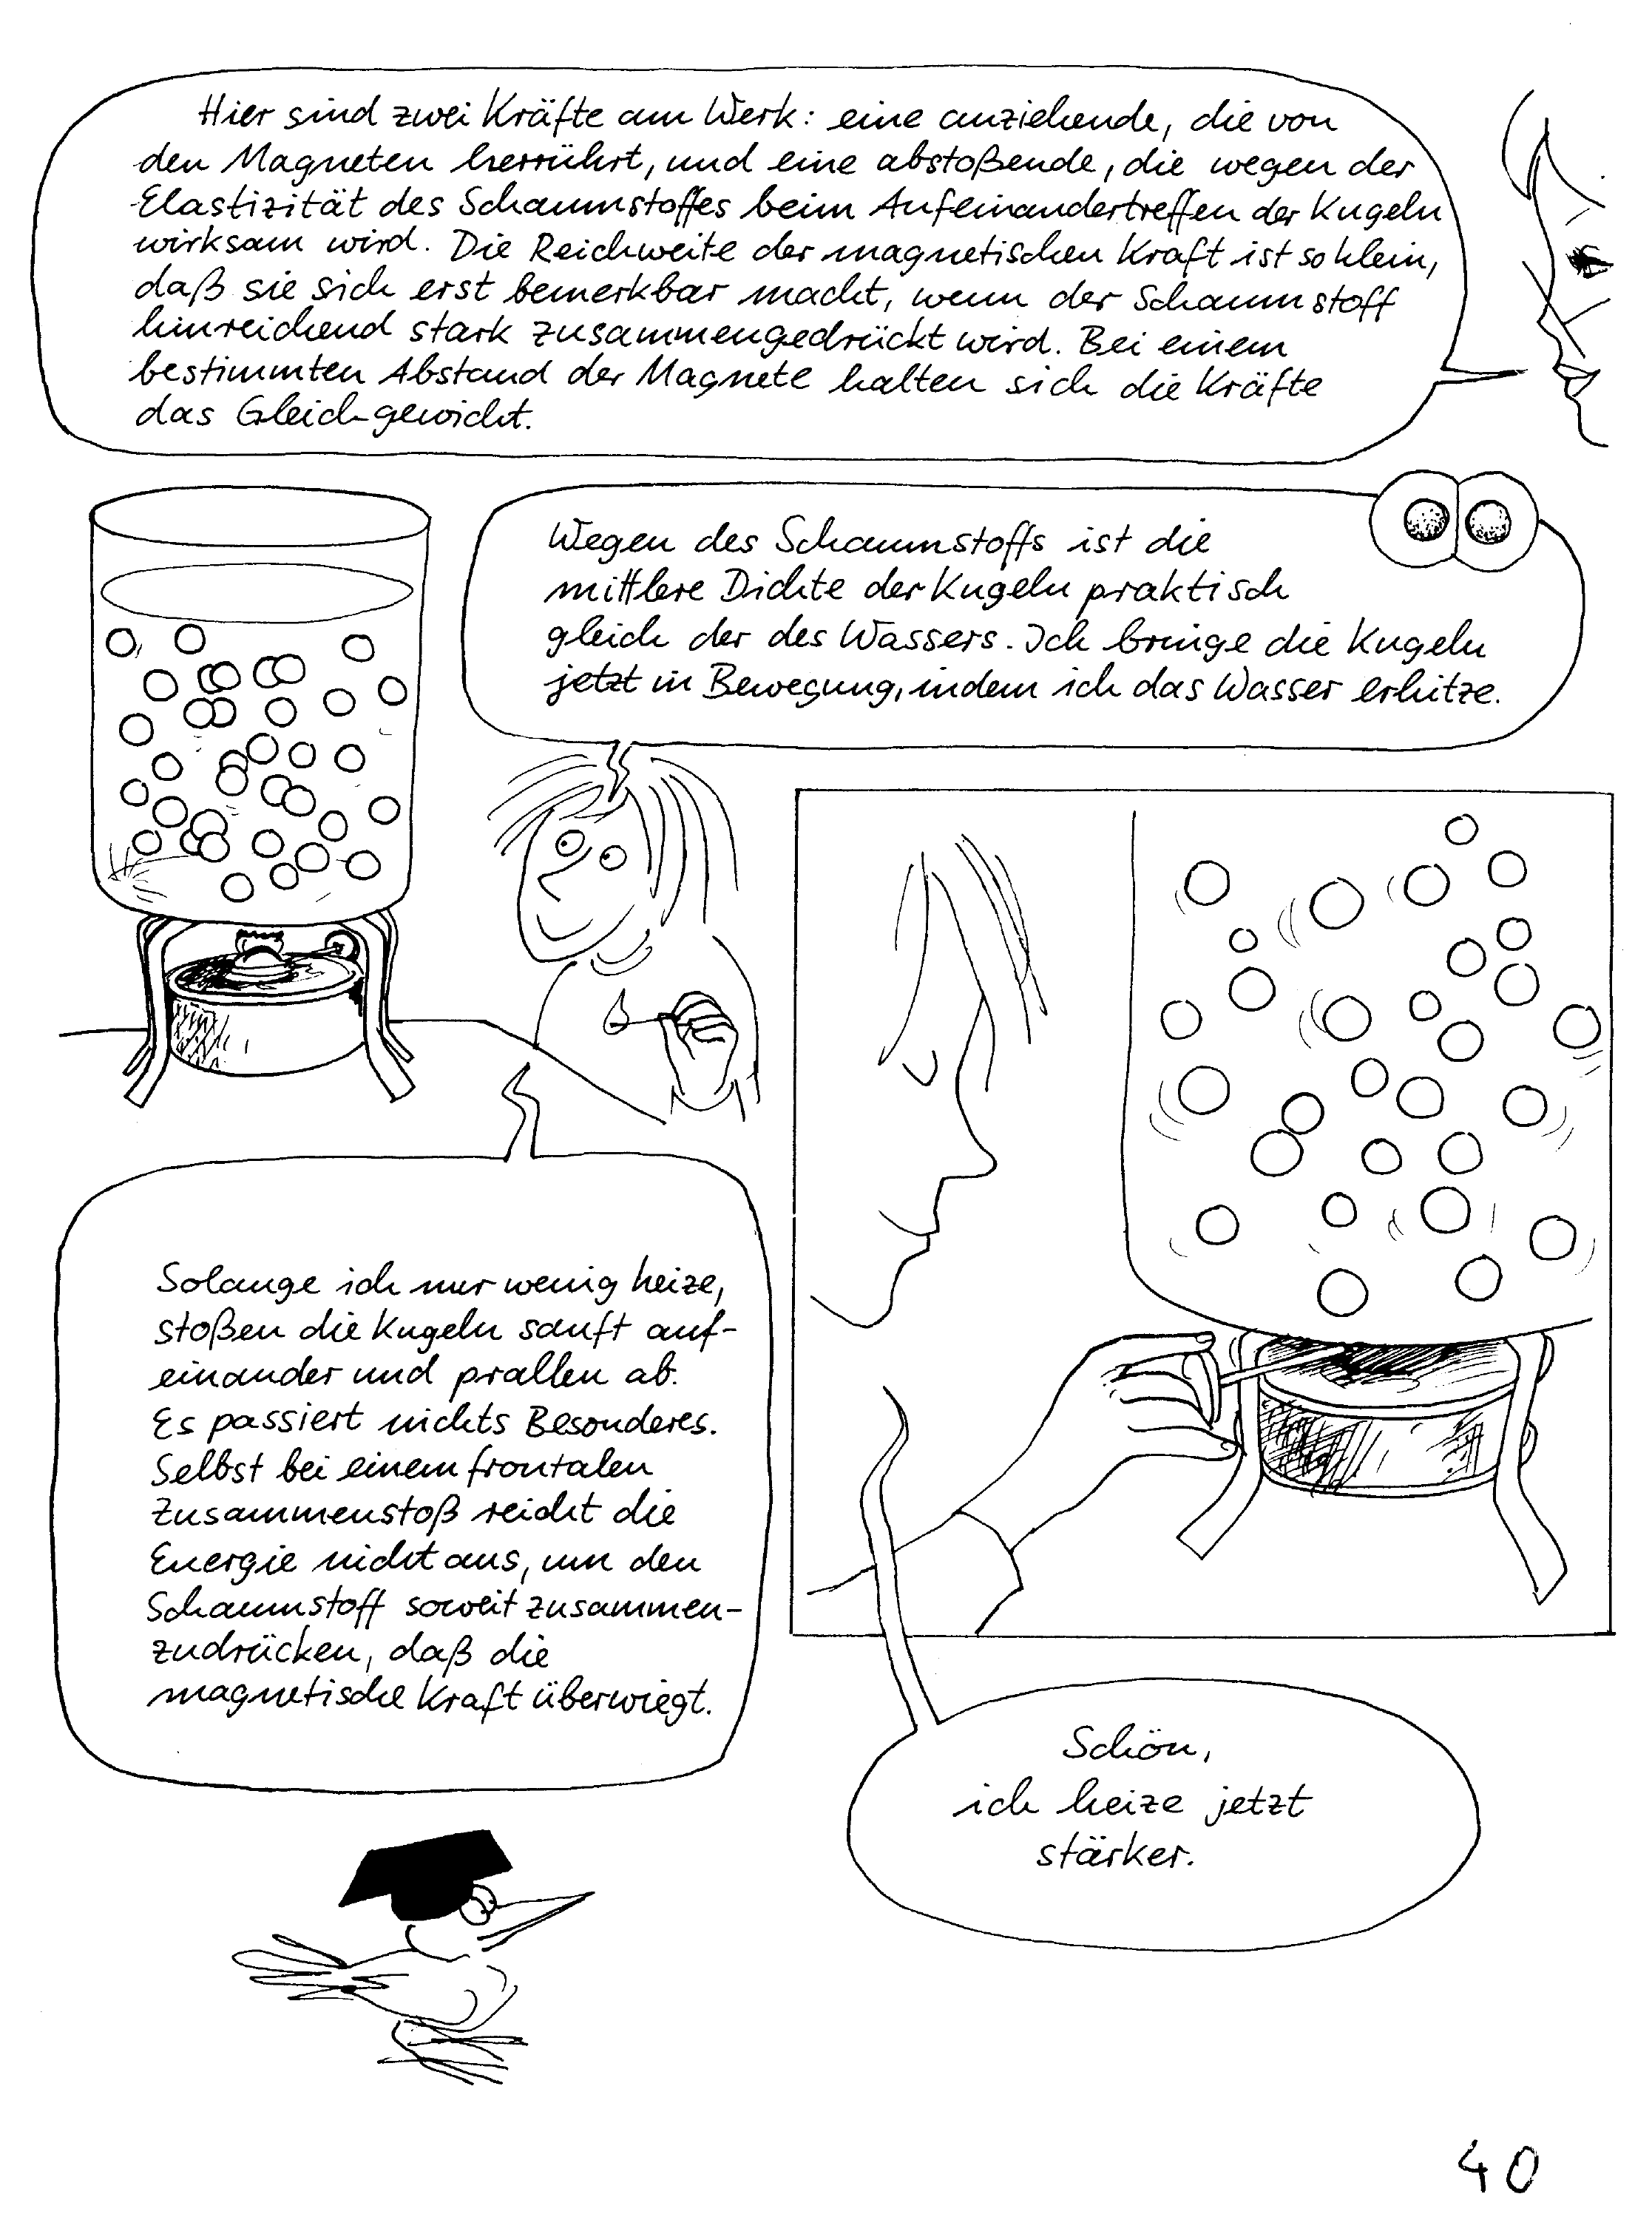 Hier sind zwei Kräfte am Werk: eine anziehende, die von
den Magneten herrührt, und eine abstoßende, die wegen der
Elastizität des Schaumstoffes beim Aufeinandertreffen der Kugeln
wirksam wird. Die Reichweite der magnetischen Kraft ist so klein,
daß sie sich erst bemerkbar macht, wenn der Schaumstoff
hinreichend stark zusammengedrückt wird. Bei einem
bestimmten Abstand der Magnete halten sich die Kräfte
das Gleichgewicht.
Wegen des Schaumstoffs ist die
mittlere Dichte der Kugeln praktisch
gleich der des Wassers. Ich bringe die Kugeln
jetzt in Bewegung, indem ich das Wasser erhitze.
Solange ich nur wenig heize,
stoßen die Kugeln sanft auf-
einander und prallen ab.
Es passiert nichts Besonderes.
Selbst bei einem frontalen
Zusammenstoß reicht die
Energie nicht aus, um den
Schaumstoff soweit zusammen-
zudrücken, daß die
magnetische Kraft überwiegt.
Schön,
ich heize jetzt
stärker.
40